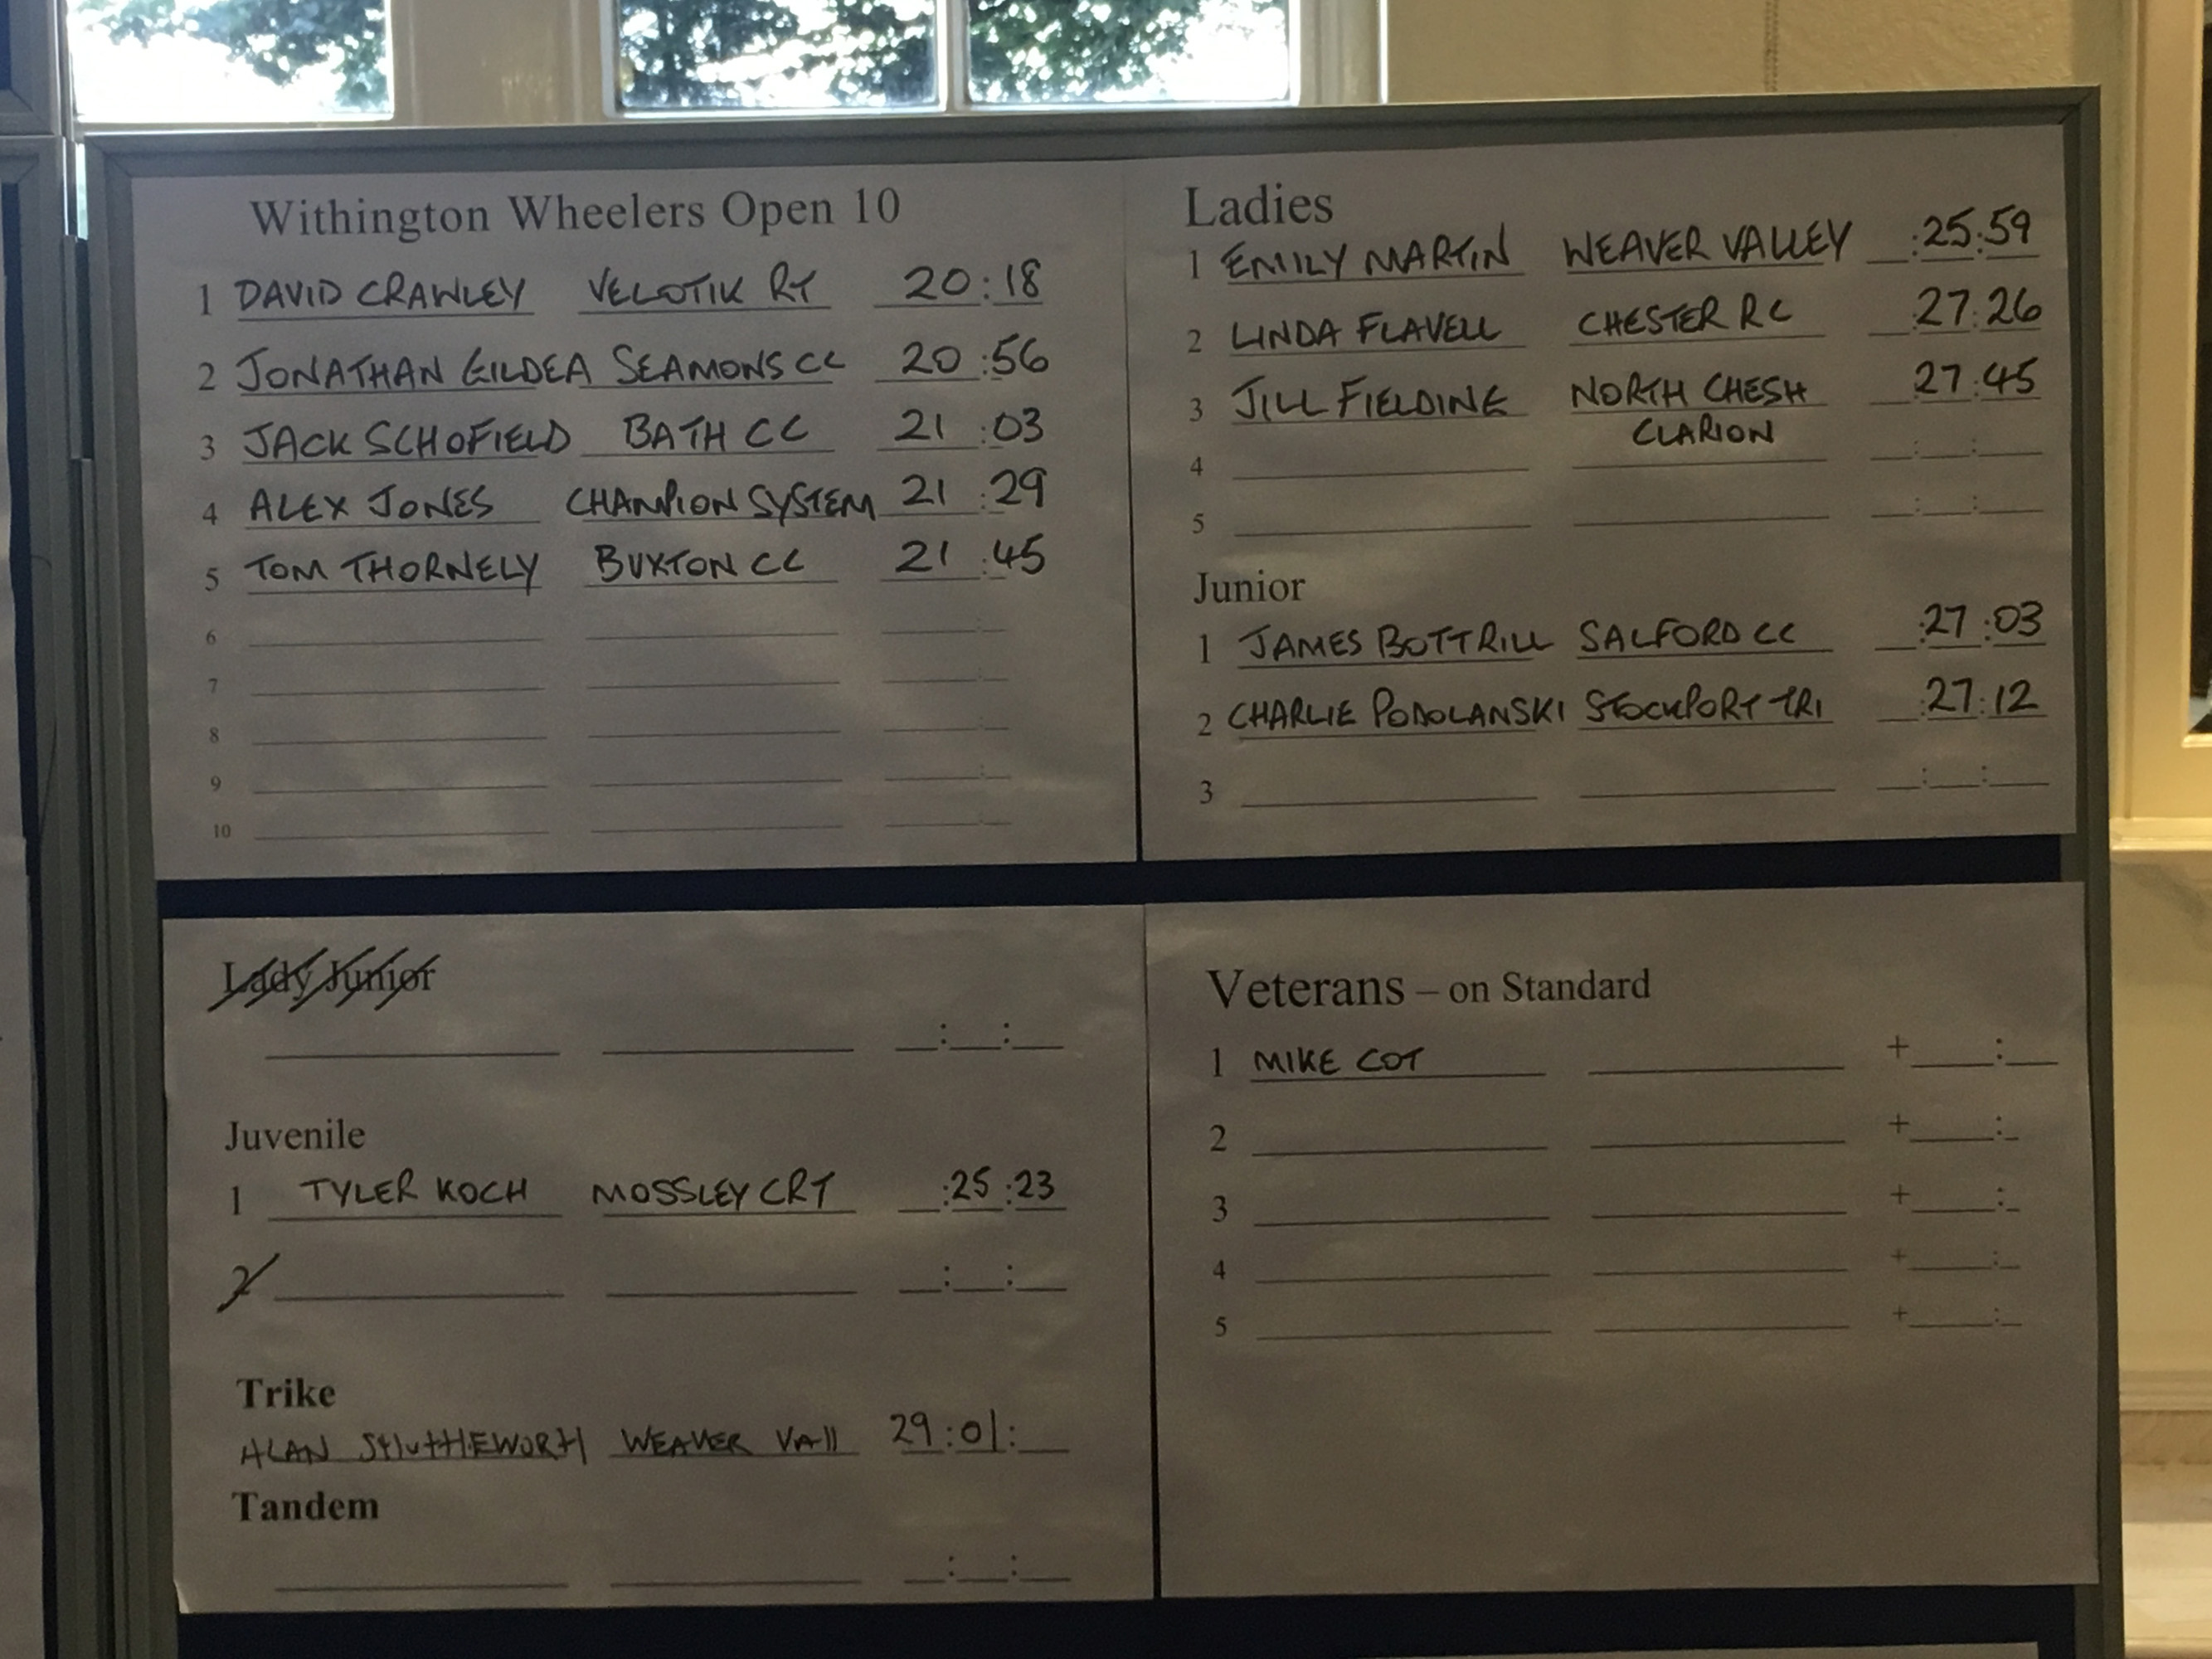 Withington Wheelers Open 10
1 DAVID CRAWLEY VELOTIK RT 20:18
2 JONATHAN GILDEA SEAMONS CC 20:56
3 JACK SCHOFIELD BATH CC 21:03
4 ALEX JONES CHAMPION SYSTEM 21:29
5 TOM THORNELY BUXTON CC 21:45
6
7
8
9
10
Ladies
1 EMILY MARTIN WEAVER VALLEY :25:59
2 LINDA FLAVELL CHESTER RC 27:26
3 JILL FIELDING NORTH CHESH 27:45
CLARION
4
5
Junior
1 JAMES BOTTRILL SALFORD CC :27:03
2 CHARLIE PODOLANSKI STOCKPORT TRI :27:12
3
Lady Junior
Juvenile
1 TYLER KOCH MOSSLEY CRT :25:23
2
Trike
ALAN SHUTTLEWORTH WEAVER VALL 29:01:
Tandem
Veterans – on Standard
1 MIKE COT + :
2 + :
3 + :
4 + :
5 + :